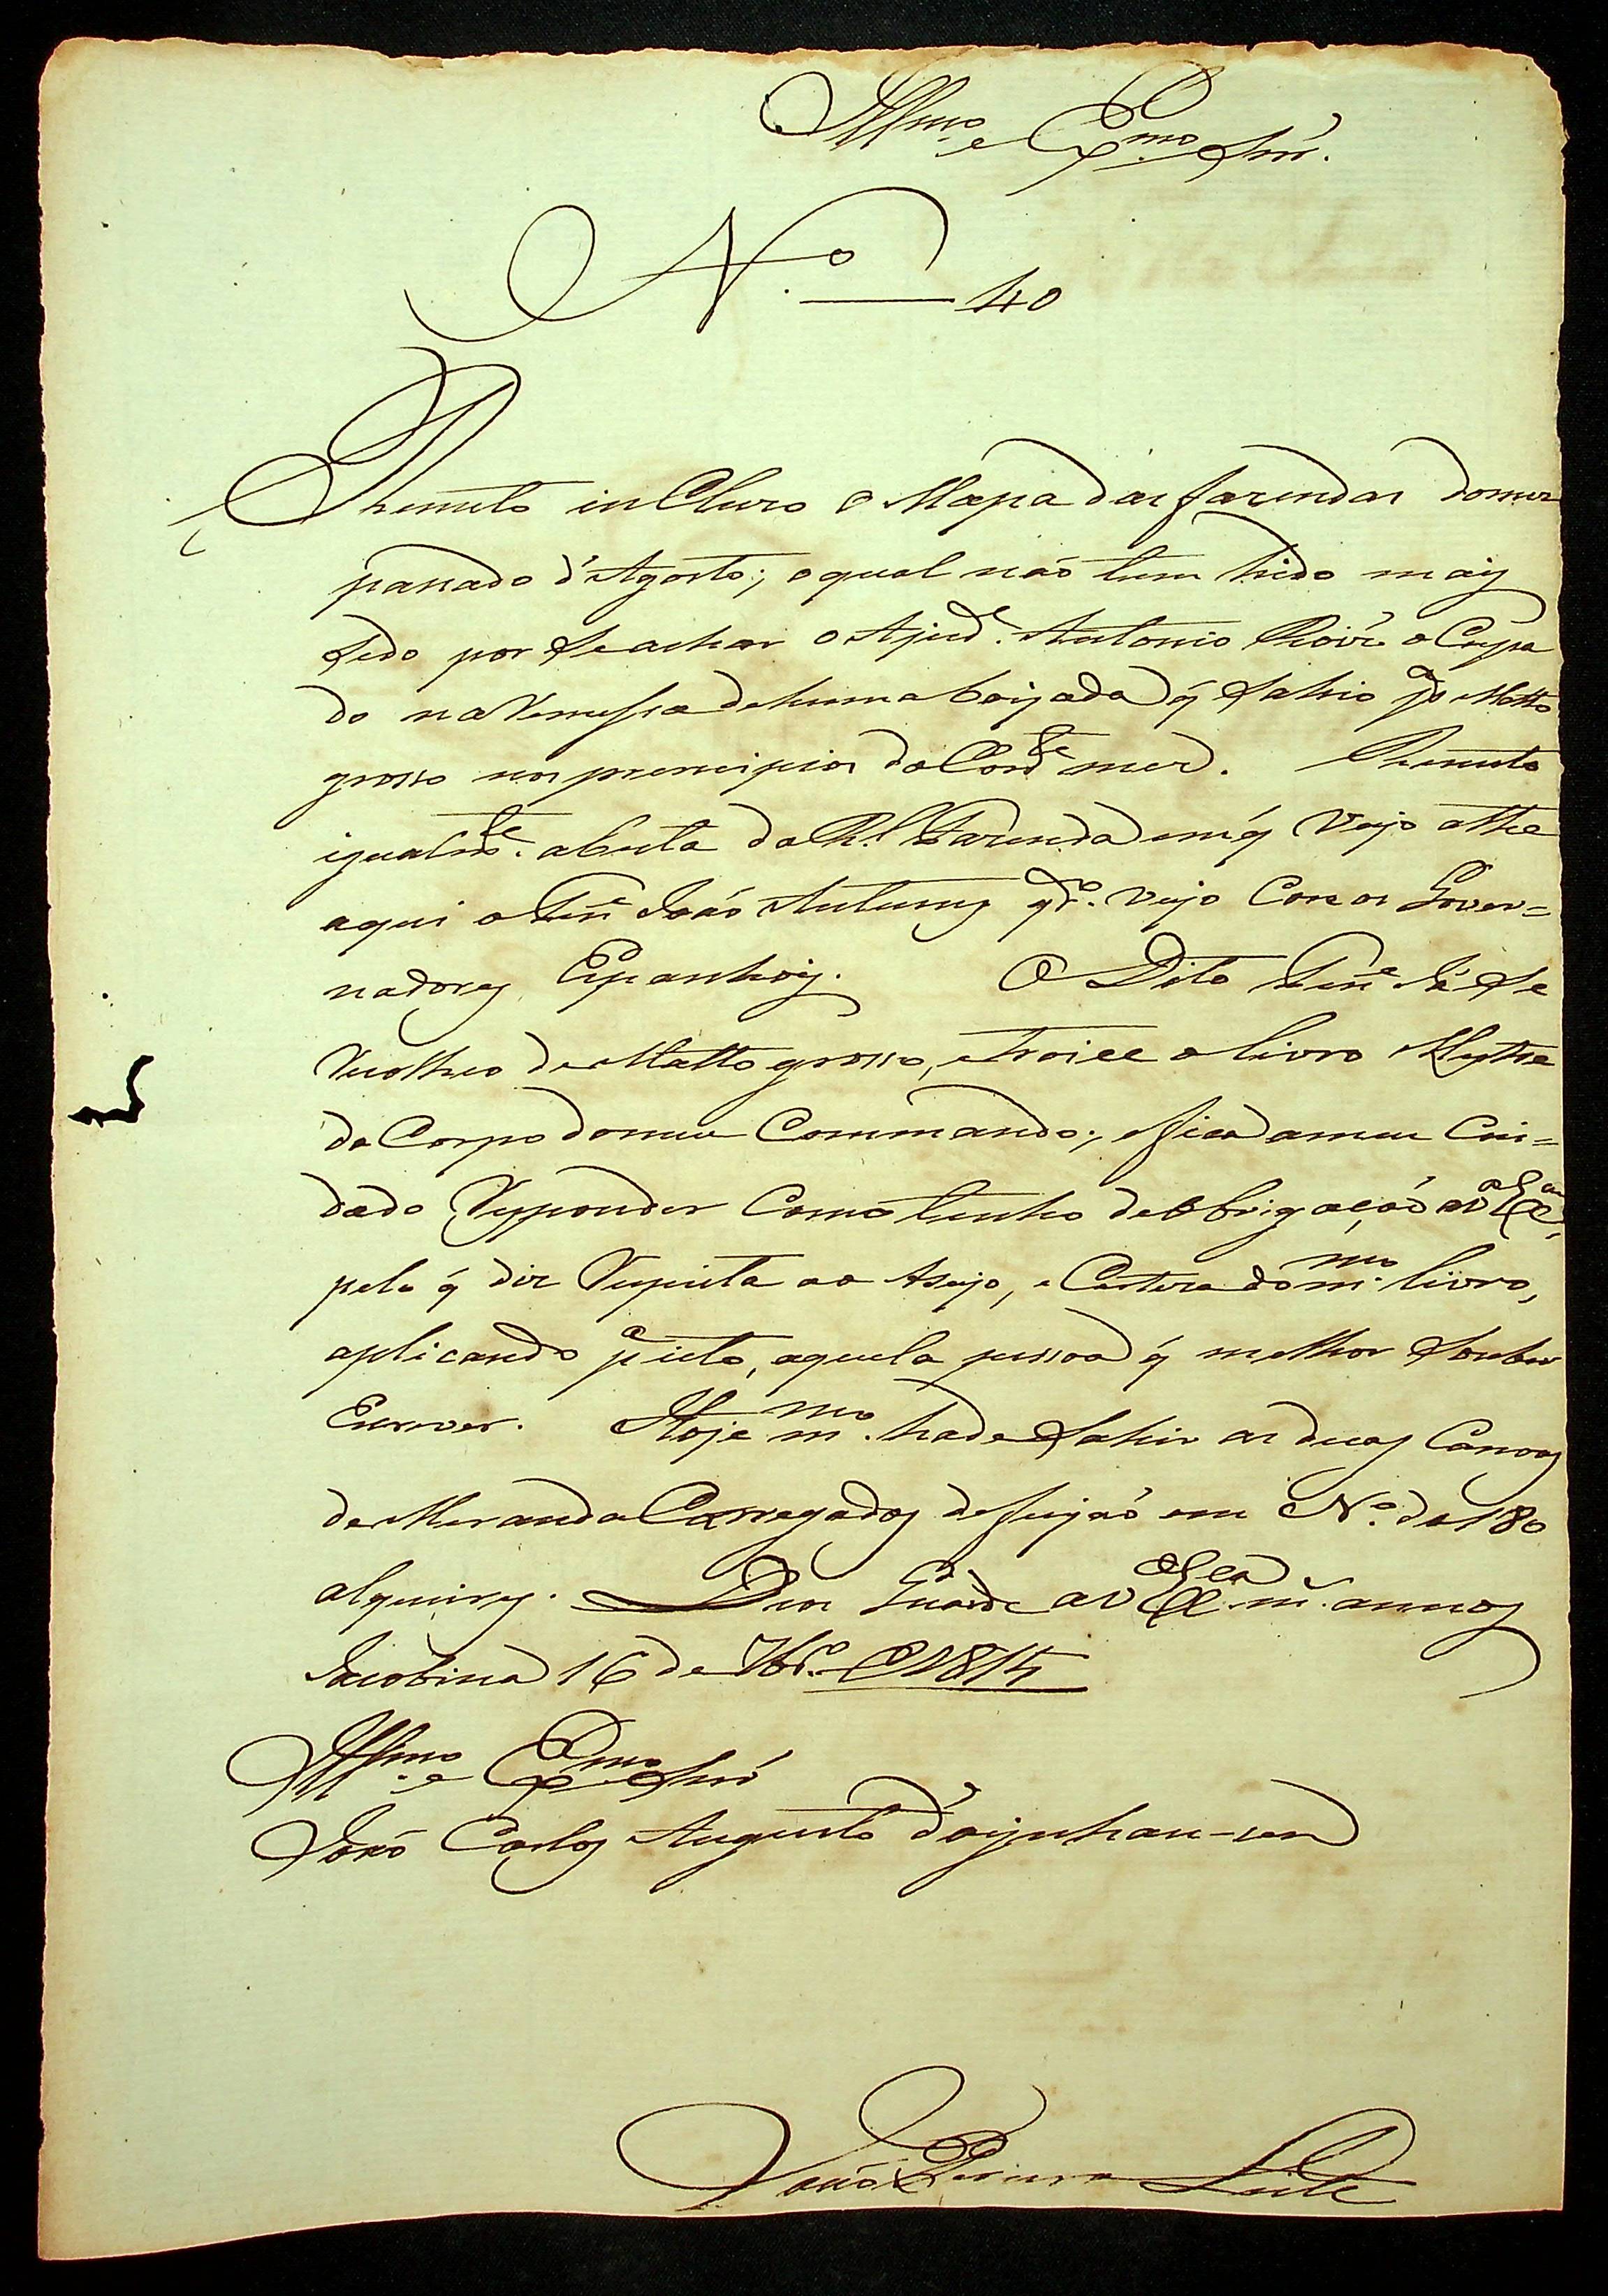 Illmo. e Exmo. Snr.
N.o 40
Remeto incluzo o Mapa das fazendas do mez
passado d'Agosto; o qual não tem hido maiz
sedo por se achar o Ajude. Antonio Roiz' o Cupa
do na Remessa de huma boiyada q̃ Sahio pa. Matto
grosso nos prencipios do Corrde. mez. Remeto
igualmte. a besta da Rl. Fazenda em q̃ Veijo athe
aqui o Tene. João Antunes qdo. veijo Com os Gover=
nadores Espanhois. O Dito Tene. Já Se
Recolheo de Matto grosso, e troice o livro Mestre
do Corpo do meu Commando; e fica a meu Cui=
dado Responder Como tenho de obrigação a V. Exca.,
pelo q̃ diz Respeito ao Aseijo, e Caitera do mmo. livro,
aplicando pa. isto, aquela pessoa q̃ melhor Souber
Escrever. Hoje mmo. hade Sahir as duas Canoas
de Meranda Carregados de feijão em No. de 180
alqueires. Deos Guarde a V. Exca. ms. annos
Jacobina 16 de 7bro. de 1814
Illmo. e Exmo. Snr.
João Carlos Augusto d'Oijnhau-sen
João Pereira Leite